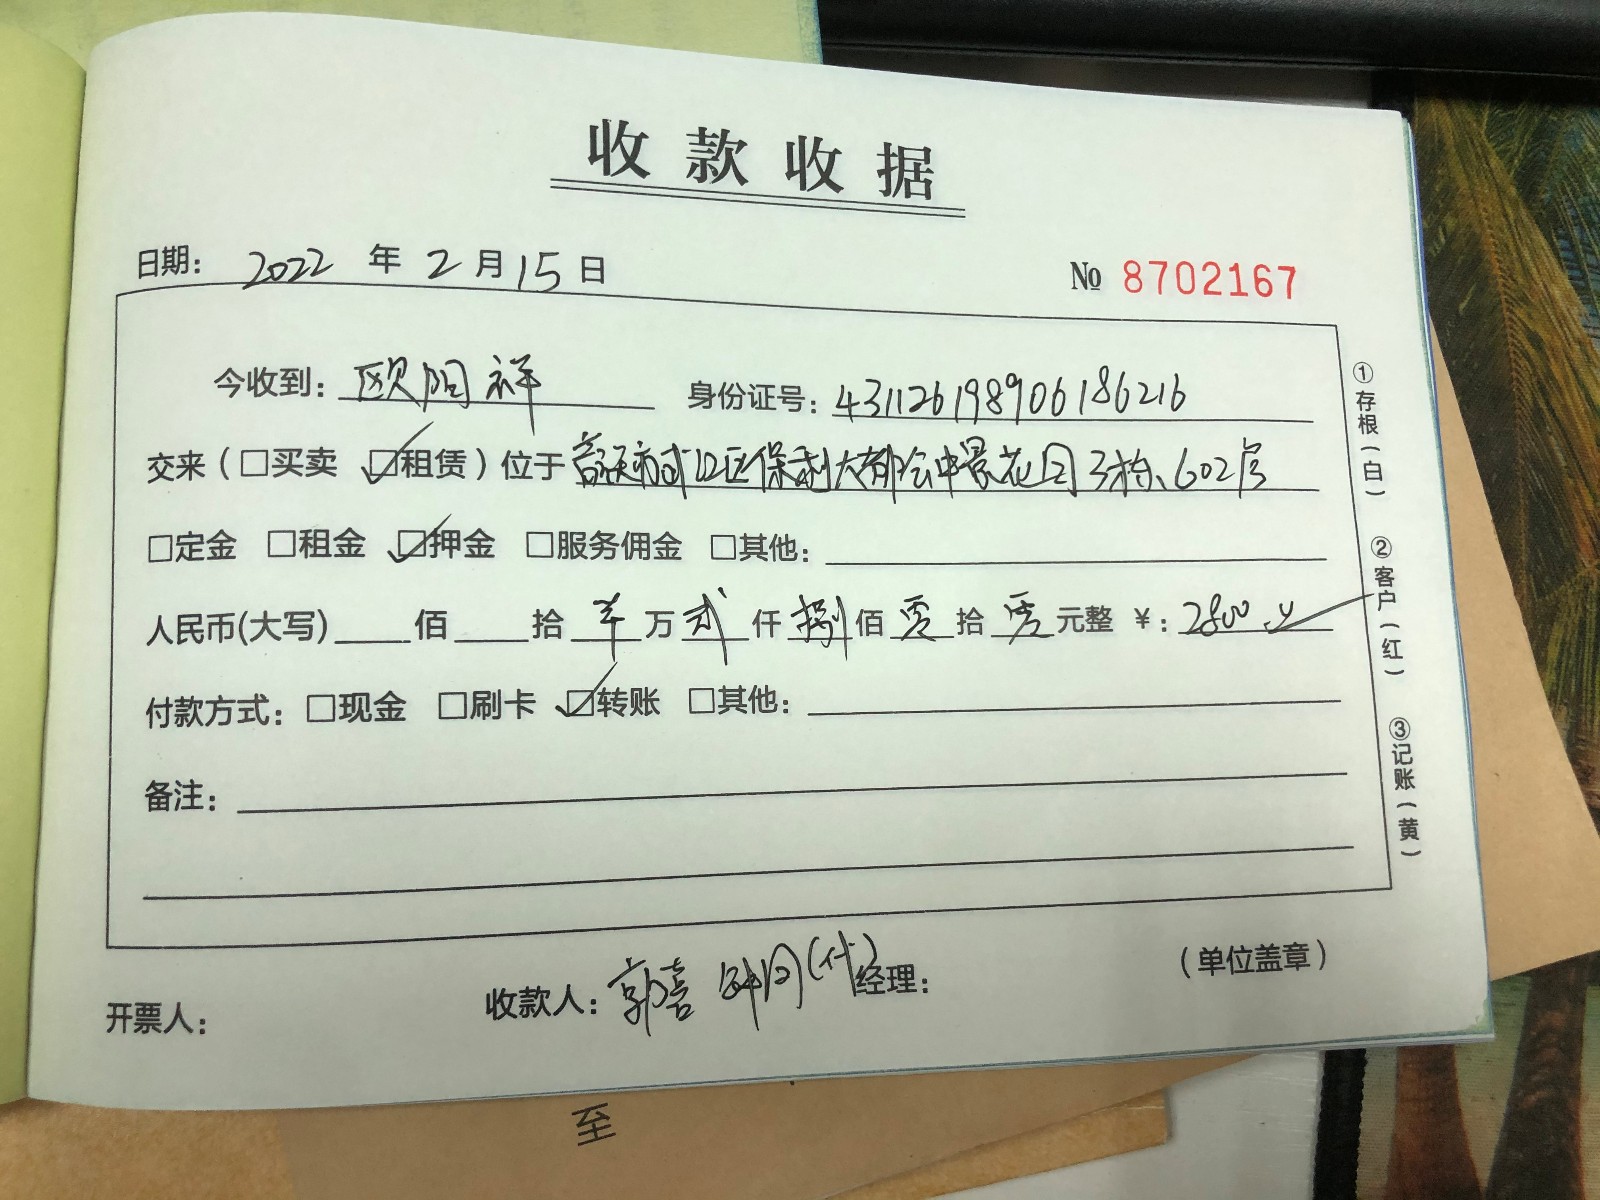 收款收据
日期： 2022 年 2 月 15 日
№ 8702167
今收到：欧阳祥 身份证号：431126198906186216
交来（□买卖 ☑租赁）位于 区保利大都会中景花园3栋602房
□定金 □租金 ☑押金 □服务佣金 □其他：
人民币(大写) 佰 拾 万 贰 仟 捌 佰 零 拾 零 元整 ¥：2800
付款方式：□现金 □刷卡 ☑转账 □其他：
备注：
开票人： 收款人：郭喜 (代) 经理： （单位盖章）
①存根（白）
②客户（红）
③记账（黄）
至